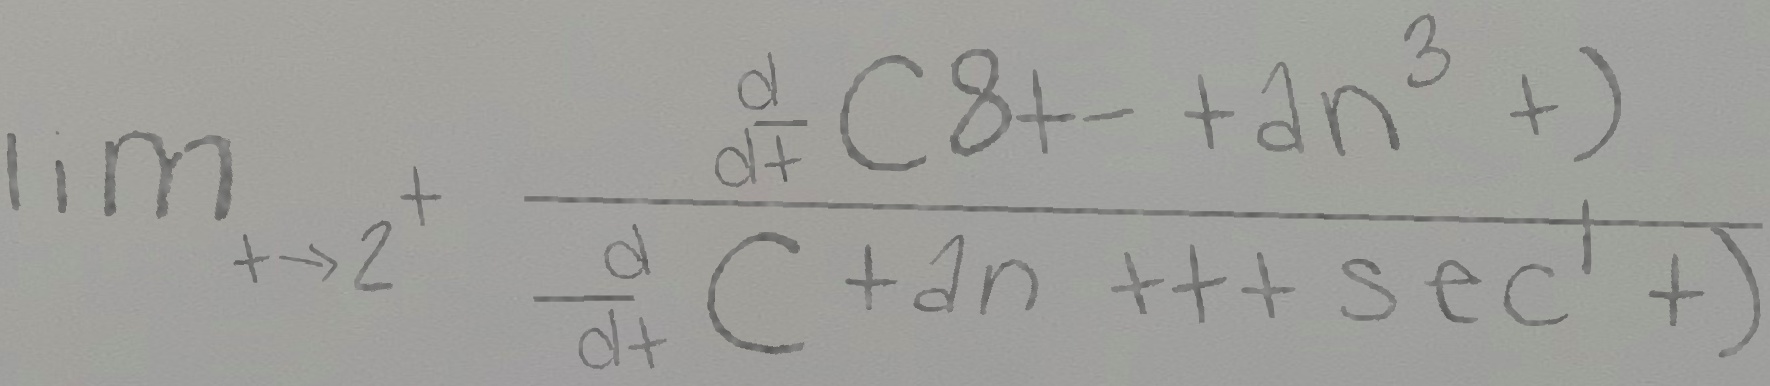 lim_{t→2^+} \frac{\frac{d}{dt}(8t - tan^3 t)}{\frac{d}{dt}(tan t + t sec^1 t)}